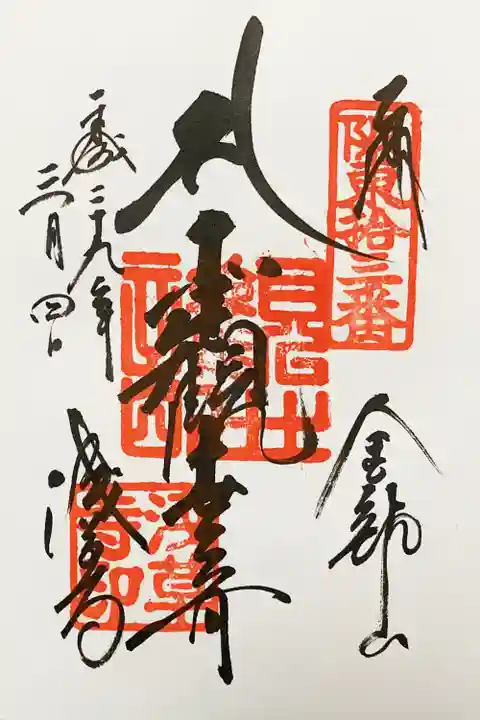 奉拝
阪東拾三番
金龍山
聖観世音
浅草寺印
平成二十九年
三月四日
浅草寺